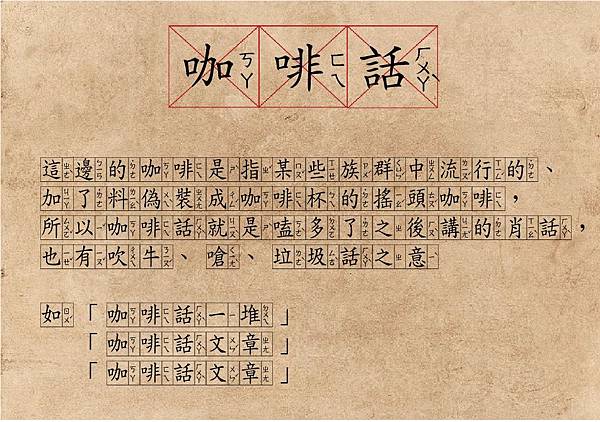 咖啡話
這邊的咖啡是指某些族群中流行的、
加了料偽裝成咖啡杯的搖頭咖啡，
所以咖啡話就是嗑多了之後講的肖話，
也有吹牛、嗆、垃圾話之意
如「咖啡話一堆」
「咖啡話文章」
「咖啡話文章」